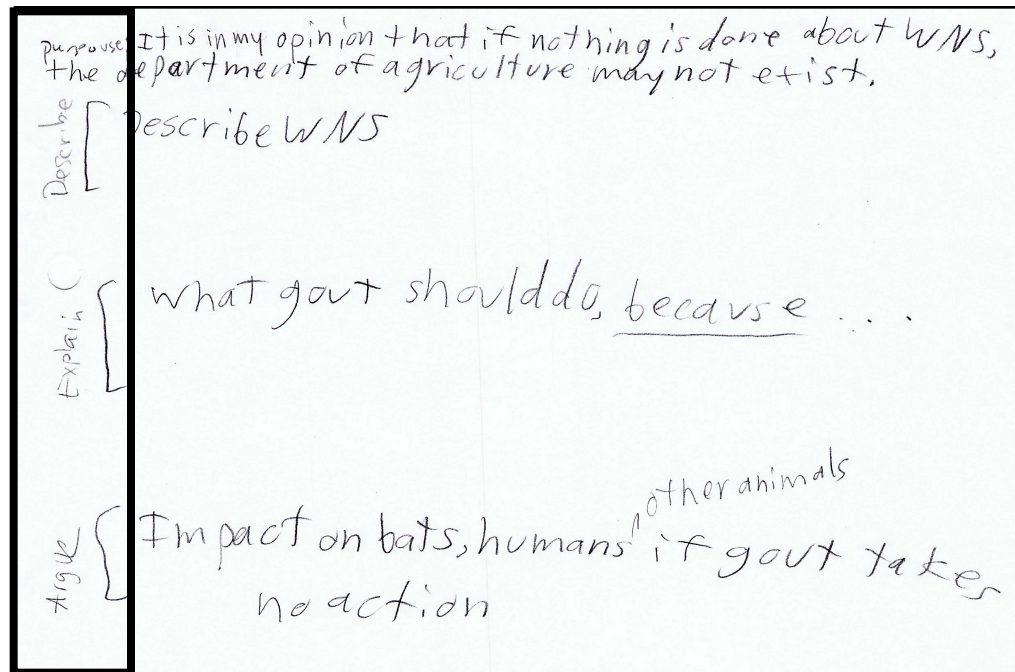 purpouse: It is in my opinion that if nothing is done about WNS,
the department of agriculture may not exist.
Describe
Describe WNS
Explain
what govt should do, because ...
Argue
other animals
Impact on bats, humans ^ if govt takes
no action